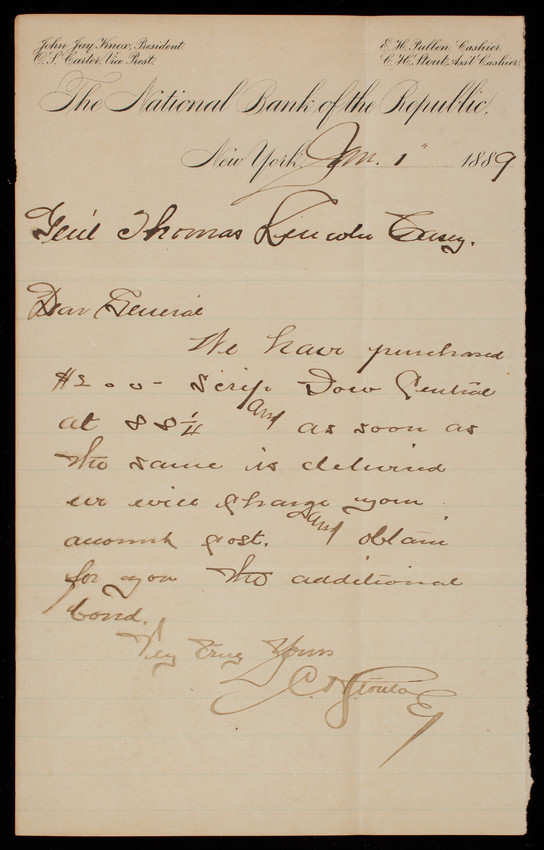 John Jay Knox, President.
O. S. Carter, Vice Prest.
E. H. Pullen, Cashier.
C. H. Stout, Ass't Cashier.
The National Bank of the Republic.
New York, Jan. 1" 1889
Gen'l Thomas Lincoln Casey.
Dear General
We have purchased
$200- Scrip Central
at 88 1/4 and as soon as
the same is delivered
we will charge your
account cost. and obtain
for you the additional
bond.
Very truly Yours
C. H. Stout